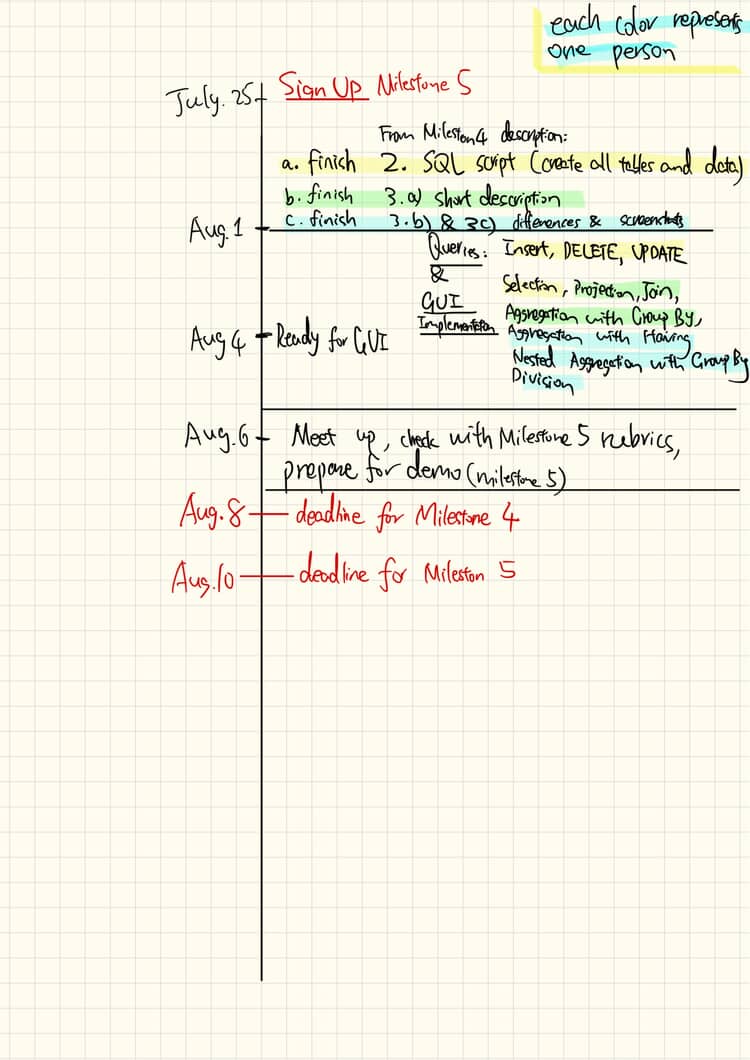 each color represents
one person
July. 25 Sign Up Milestone 5
From Mileston 4 description:
a. finich 2. SQL script (create all tables and data)
b. finish 3. a) short description
Aug. 1 c. finish 3. b) & 3c) differences & screenshots
Queries: Insert, DELETE, UPDATE
&
Selection, Projection, Join,
GUI
Aggregation with Group By,
Implementation
Aug 4 Ready for GUI
Aggregation with Having
Nested Aggregation with Group By
Division
Aug. 6 Meet up, check with Milestone 5 rubrics,
prepare for demo (milestone 5)
Aug. 8 deadline for Milestone 4
Aug. 10 deadline for Mileston 5